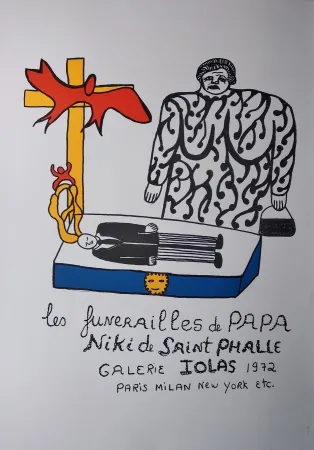 les funerailles de PAPA
Niki de SAINT PHALLE
GALERIE IOLAS 1972
PARIS MILAN NEW YORK ETC.